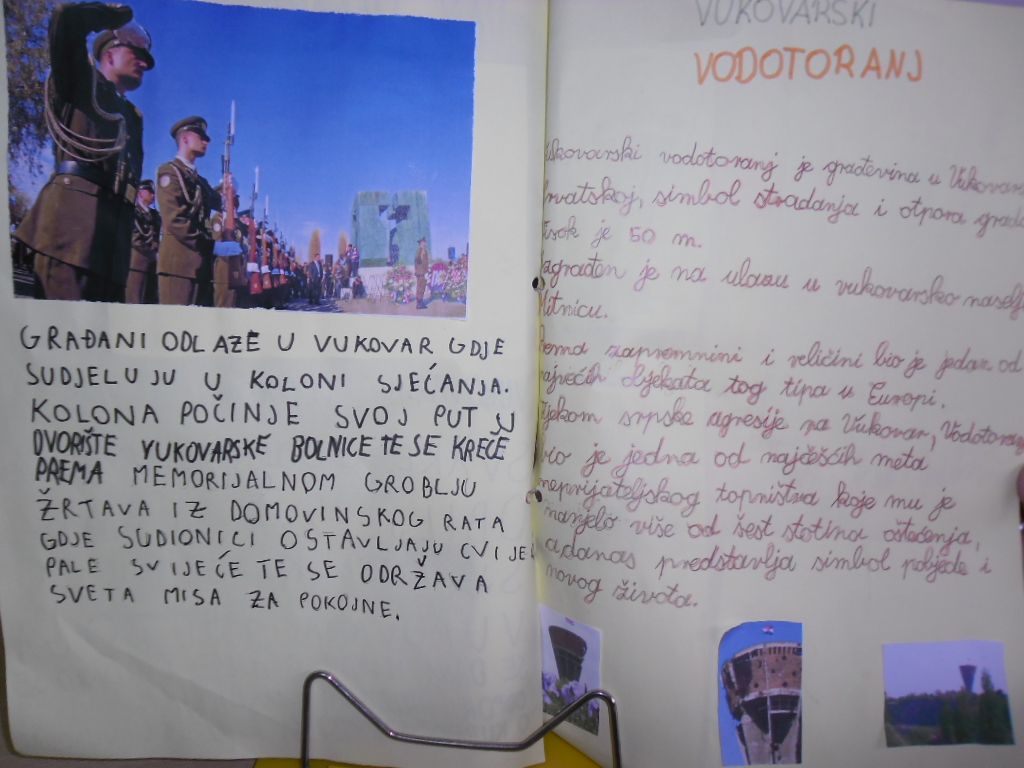 GRAĐANI ODLAZE U VUKOVAR GDJE
SUDJELUJU U KOLONI SJEĆANJA.
KOLONA POČINJE SVOJ PUT U
DVORIŠTE VUKOVARSKE BOLNICE TE SE KREĆE
PREMA MEMORIJALNOM GROBLJU
ŽRTAVA IZ DOMOVINSKOG RATA
GDJE SUDIONICI OSTAVLJAJU CVIJE
PALE SVIJEĆE TE SE ODRŽAVA
SVETA MISA ZA POKOJNE.
VUKOVARSKI
VODOTORANJ
ukovarski vodotoranj je građevina u Vukovar
rvatskoj, simbol stradanja i otpora grada
isok je 50 m.
agrađen je na ulazu u vukovarsko naselj
itnicu.
rema zapremnini i veličini bio je jedan od
najvećih objekata tog tipa u Europi.
ijekom srpske agresije na Vukovar, Vodotoranj
bio je jedna od najčešćih meta
neprijateljskog topništva koje mu je
nanjelo više od šest stotina oštećenja,
a danas predstavlja simbol pobjede i
novog života.